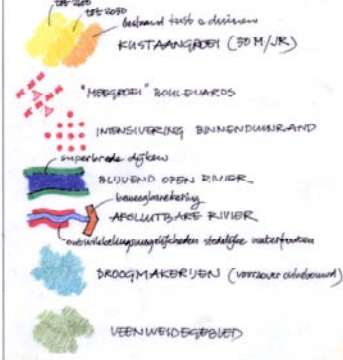 tot 2100
tot 2050
bestaand kust & duinen
KUSTAANGROEI (30 M/JR)
"MEEGROEI" BOULEVARDS
INTENSIVERING BINNENDUINRAND
superbrede dijken
BLIJVEND OPEN RIVIER
beweegbare kering
AFSLUITBARE RIVIER
ontwikkelingsmogelijkheden stedelijke waterfronten
DROOGMAKERIJEN (voorzover onbebouwd)
VEENWEIDEGEBIED